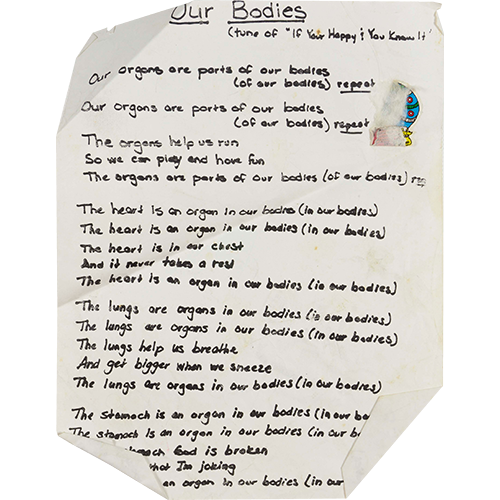 Our Bodies
(tune of "If Your Happy & You Know It"
Our organs are parts of our bodies
(of our bodies) repeat
Our organs are parts of our bodies
(of our bodies) repeat
The organs help us run
So we can play and have fun
The organs are parts of our bodies (of our bodies)
The heart is an organ in our bodies (in our bodies)
The heart is an organ in our bodies (in our bodies)
The heart is in our chest
And it never takes a rest
The heart is an organ in our bodies (in our bodies)
The lungs are organs in our bodies (in our bodies)
The lungs are organs in our bodies (in our bodies)
The lungs help us breathe
And get bigger when we sneeze
The lungs are organs in our bodies (in our bodies)
The stomach is an organ in our bodies (in our bo
The stomach is an organ in our bodies (in our b
food is broken
that I'm joking
an organ in our bodies (in our